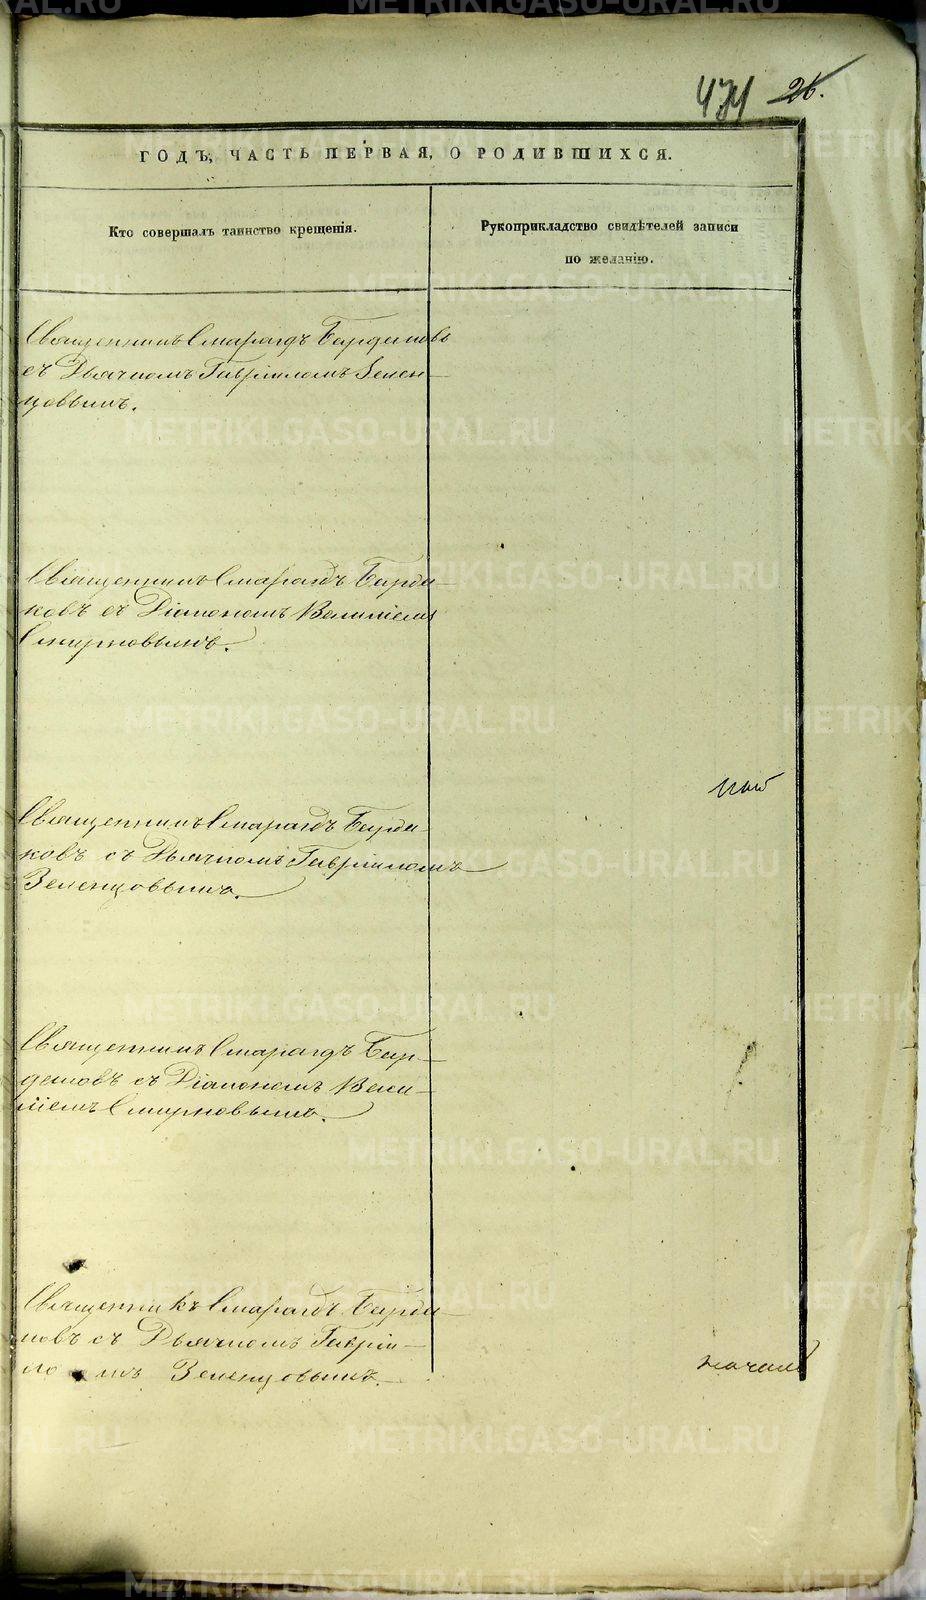 474 26.
ГОДЪ, ЧАСТЬ ПЕРВАЯ, О РОДИВШИХСЯ.
Кто совершалъ таинство крещенія.
Рукоприкладство свидѣтелей записи
по желанію.
Священникъ Смарагдъ Бурдуковъ
съ Дьячкомъ Гавріиломъ Зелен-
цовымъ.
Священникъ Смарагдъ
ковъ съ Діакономъ
Смирновымъ.
Священникъ Смарагдъ
ковъ съ Дьячкомъ Гавріиломъ
Зеленцовымъ.
Священникъ Смарагдъ
съ Діакономъ
Смирновымъ.
Священникъ Смарагдъ
ковъ съ Дьячкомъ Гавріи-
ломъ Зеленцовымъ.
METRIKI.GASO-URAL.RU